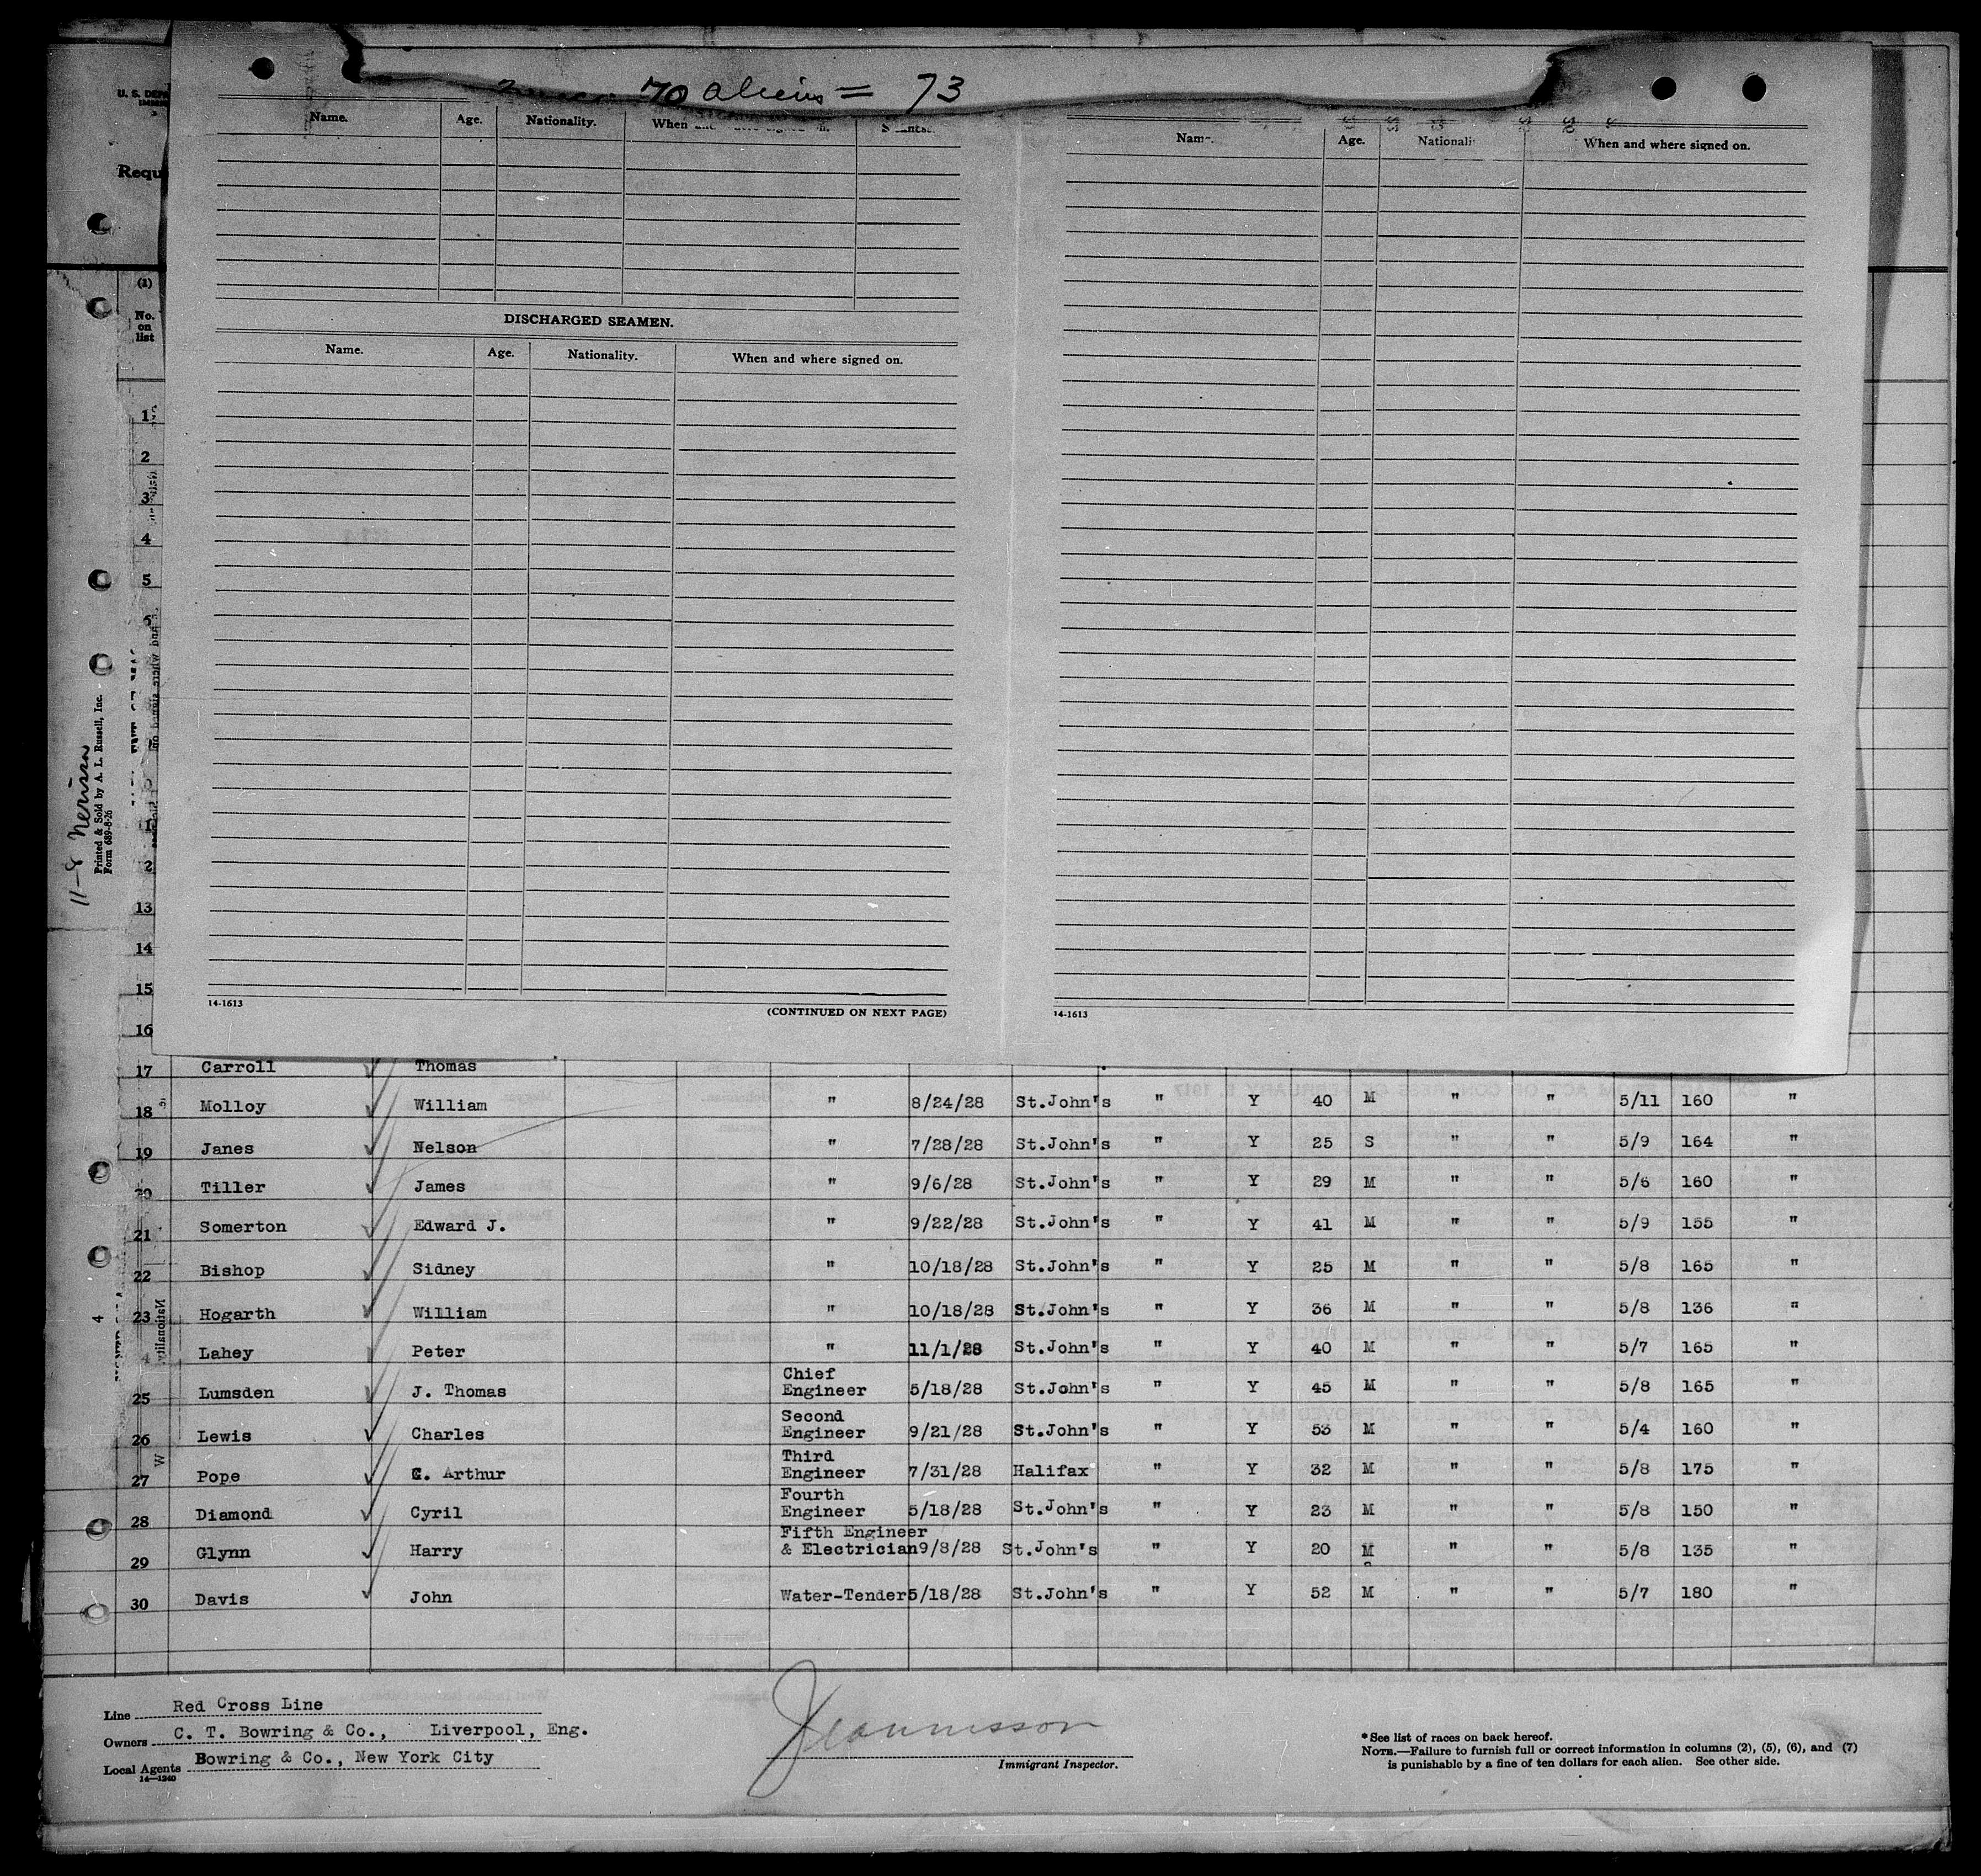 70 aliens = 73
U. S. DEP
Requ
Name. Age. Nationality. When
Name. Age. When and where signed on.
DISCHARGED SEAMEN.
Name. Age. Nationality. When and where signed on.
(1)
No.
on
list
1
2
3
4
5
13
14
15
16
14-1613 (CONTINUED ON NEXT PAGE) 14-1613
11-8 Nerissa
Printed & Sold by A. L. Russell, Inc.
Form 689-8-26
17 Carroll Thomas
18 Molloy William " 8/24/28 St.John's " Y 40 M " " 5/11 160 "
19 Janes Nelson " 7/28/28 St.John's " Y 25 S " " 5/9 164 "
20 Tiller James " 9/6/28 St.John's " Y 29 M " " 5/6 160 "
21 Somerton Edward J. " 9/22/28 St.John's " Y 41 M " " 5/9 155 "
22 Bishop Sidney " 10/18/28 St.John's " Y 25 M " " 5/8 165 "
23 Hogarth William " 10/18/28 St.John's " Y 36 M " " 5/8 136 "
4 Lahey Peter " 11/1/28 St.John's " Y 40 M " " 5/7 165 "
25 Lumsden J. Thomas Chief Engineer 5/18/28 St.John's " Y 45 M " " 5/8 165 "
26 Lewis Charles Second Engineer 9/21/28 St.John's " Y 53 M " " 5/4 160 "
27 Pope C. Arthur Third Engineer 7/31/28 Halifax " Y 32 M " " 5/8 175 "
28 Diamond Cyril Fourth Engineer 5/18/28 St.John's " Y 23 M " " 5/8 150 "
29 Glynn Harry Fifth Engineer & Electrician 9/8/28 St.John's " Y 20 M " " 5/8 135 "
30 Davis John Water-Tender 5/18/28 St.John's " Y 52 M " " 5/7 180 "
4
Line Red Cross Line
Owners C. T. Bowring & Co., Liverpool, Eng.
Local Agents Bowring & Co., New York City
14—1240
Immigrant Inspector.
*See list of races on back hereof.
NOTE.—Failure to furnish full or correct information in columns (2), (5), (6), and (7)
is punishable by a fine of ten dollars for each alien. See other side.